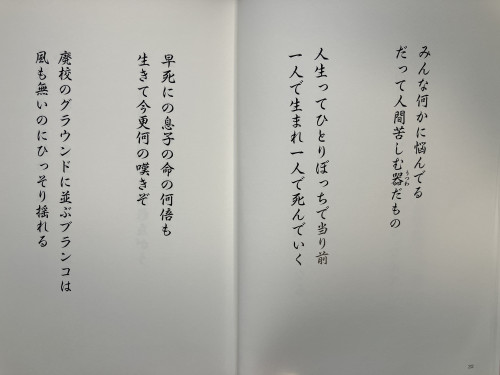 みんな何かに悩んでる
だって人間苦しむ器だもの
うつわ
人生ってひとりぼっちで当り前
一人で生まれ一人で死んでいく
早死にの息子の命の何倍も
生きて今更何の嘆きぞ
廃校のグラウンドに並ぶブランコは
風も無いのにひっそり揺れる